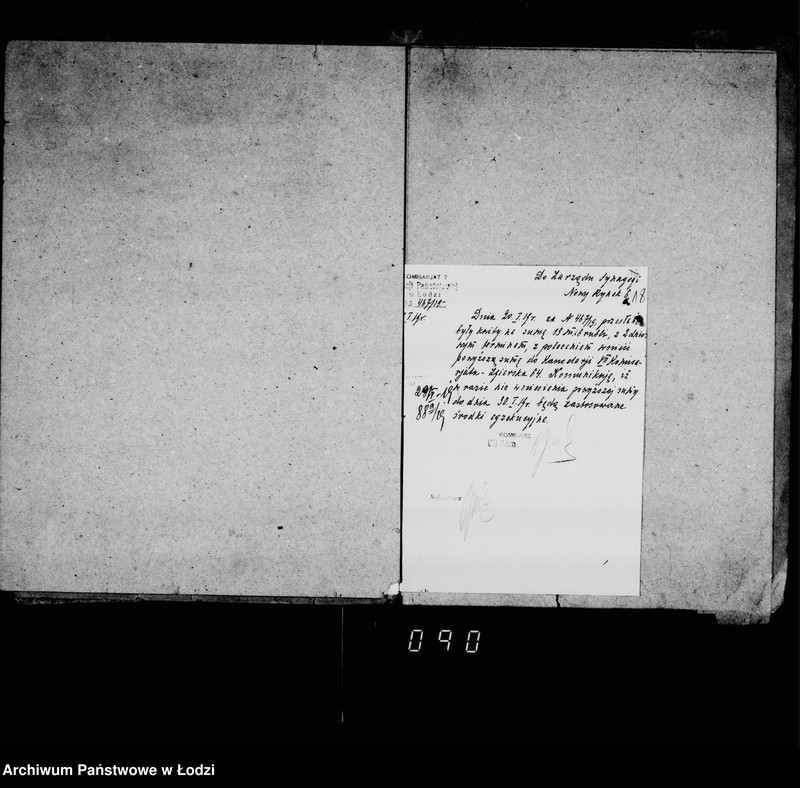 Do Zarządu Synagogi
Nowy Rynek 6
18
OMISARJAT 7
cji Państwowej
w Łodzi
467/19
I 19r.
Dnia 20.I.19r. za № 467/19 przesłane
były kwity na sumę 13 mk rubli, z 2 dnio-
wym terminem, z poleceniem wnieść
powyższą sumę do Kancelarji VII Komisa-
rjatu - Zgierska 64. Komunikuję, iż
w razie nie wniesienia powyższej sumy
do dnia 30.I.19r. będą zastosowane
środki egzekucyjne.
889/19
KOMISARZ
Sekretarz
090
Archiwum Państwowe w Łodzi